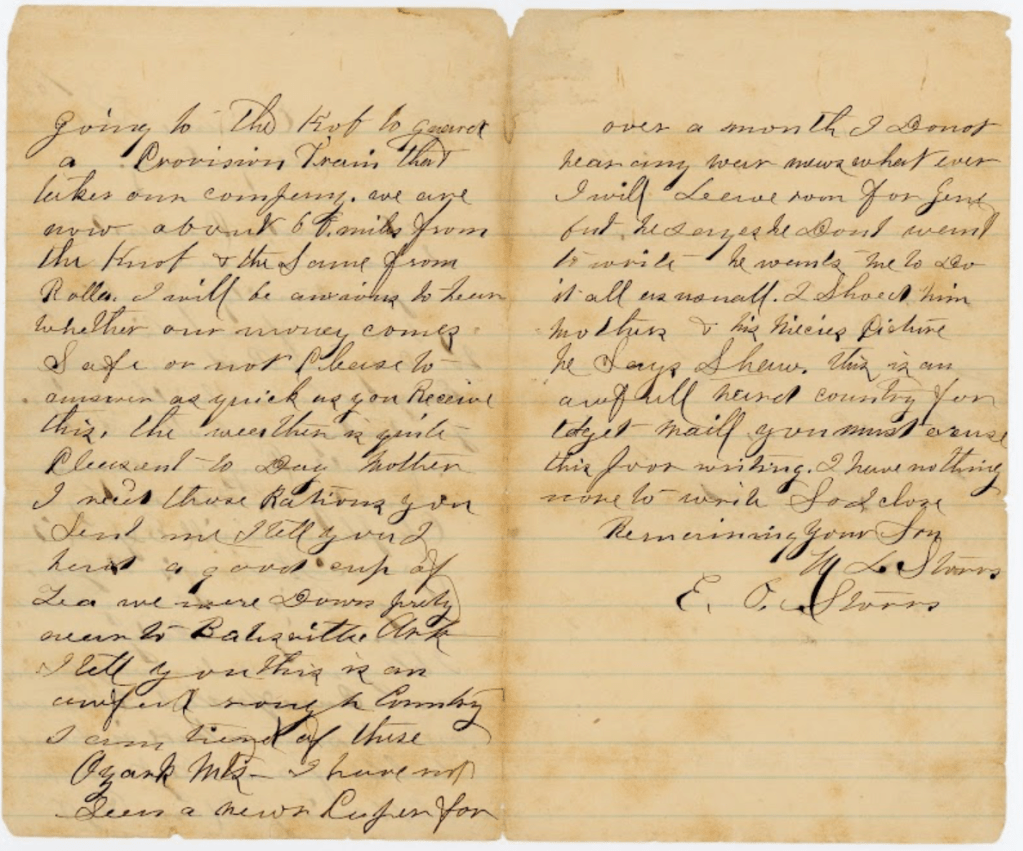 going to the Knob to guard
a Provision Train that
takes our company. we are
now about 68. miles from
the Knob & the Same from
Rolla. I will be anxious to hear
whether our money comes
Safe or not Please to
answer as quick as you Receive
this. the weather is quite
Pleasant to Day Mother
I need those Rations you
Sent me I tell you I
had a good cup of
Tea we were Down prety
near to Batesville Ark
I tell you this is an
awful rough Country
I am tired of these
Ozark Mts - I have not
Seen a news Paper for
over a month I Do not
hear any war news what ever
I will Leave room for Gene
but he says he Dont want
to write he wants me to Do
it all as usuall. I Showed him
Mothers & his Niecies Picture
he Says Shaw. this is an
awfull hard country for
to get maill you must excuse
this poor writing. I have nothing
more to write So I close
Remaining your Son
W L Storrs
E. O. Storrs